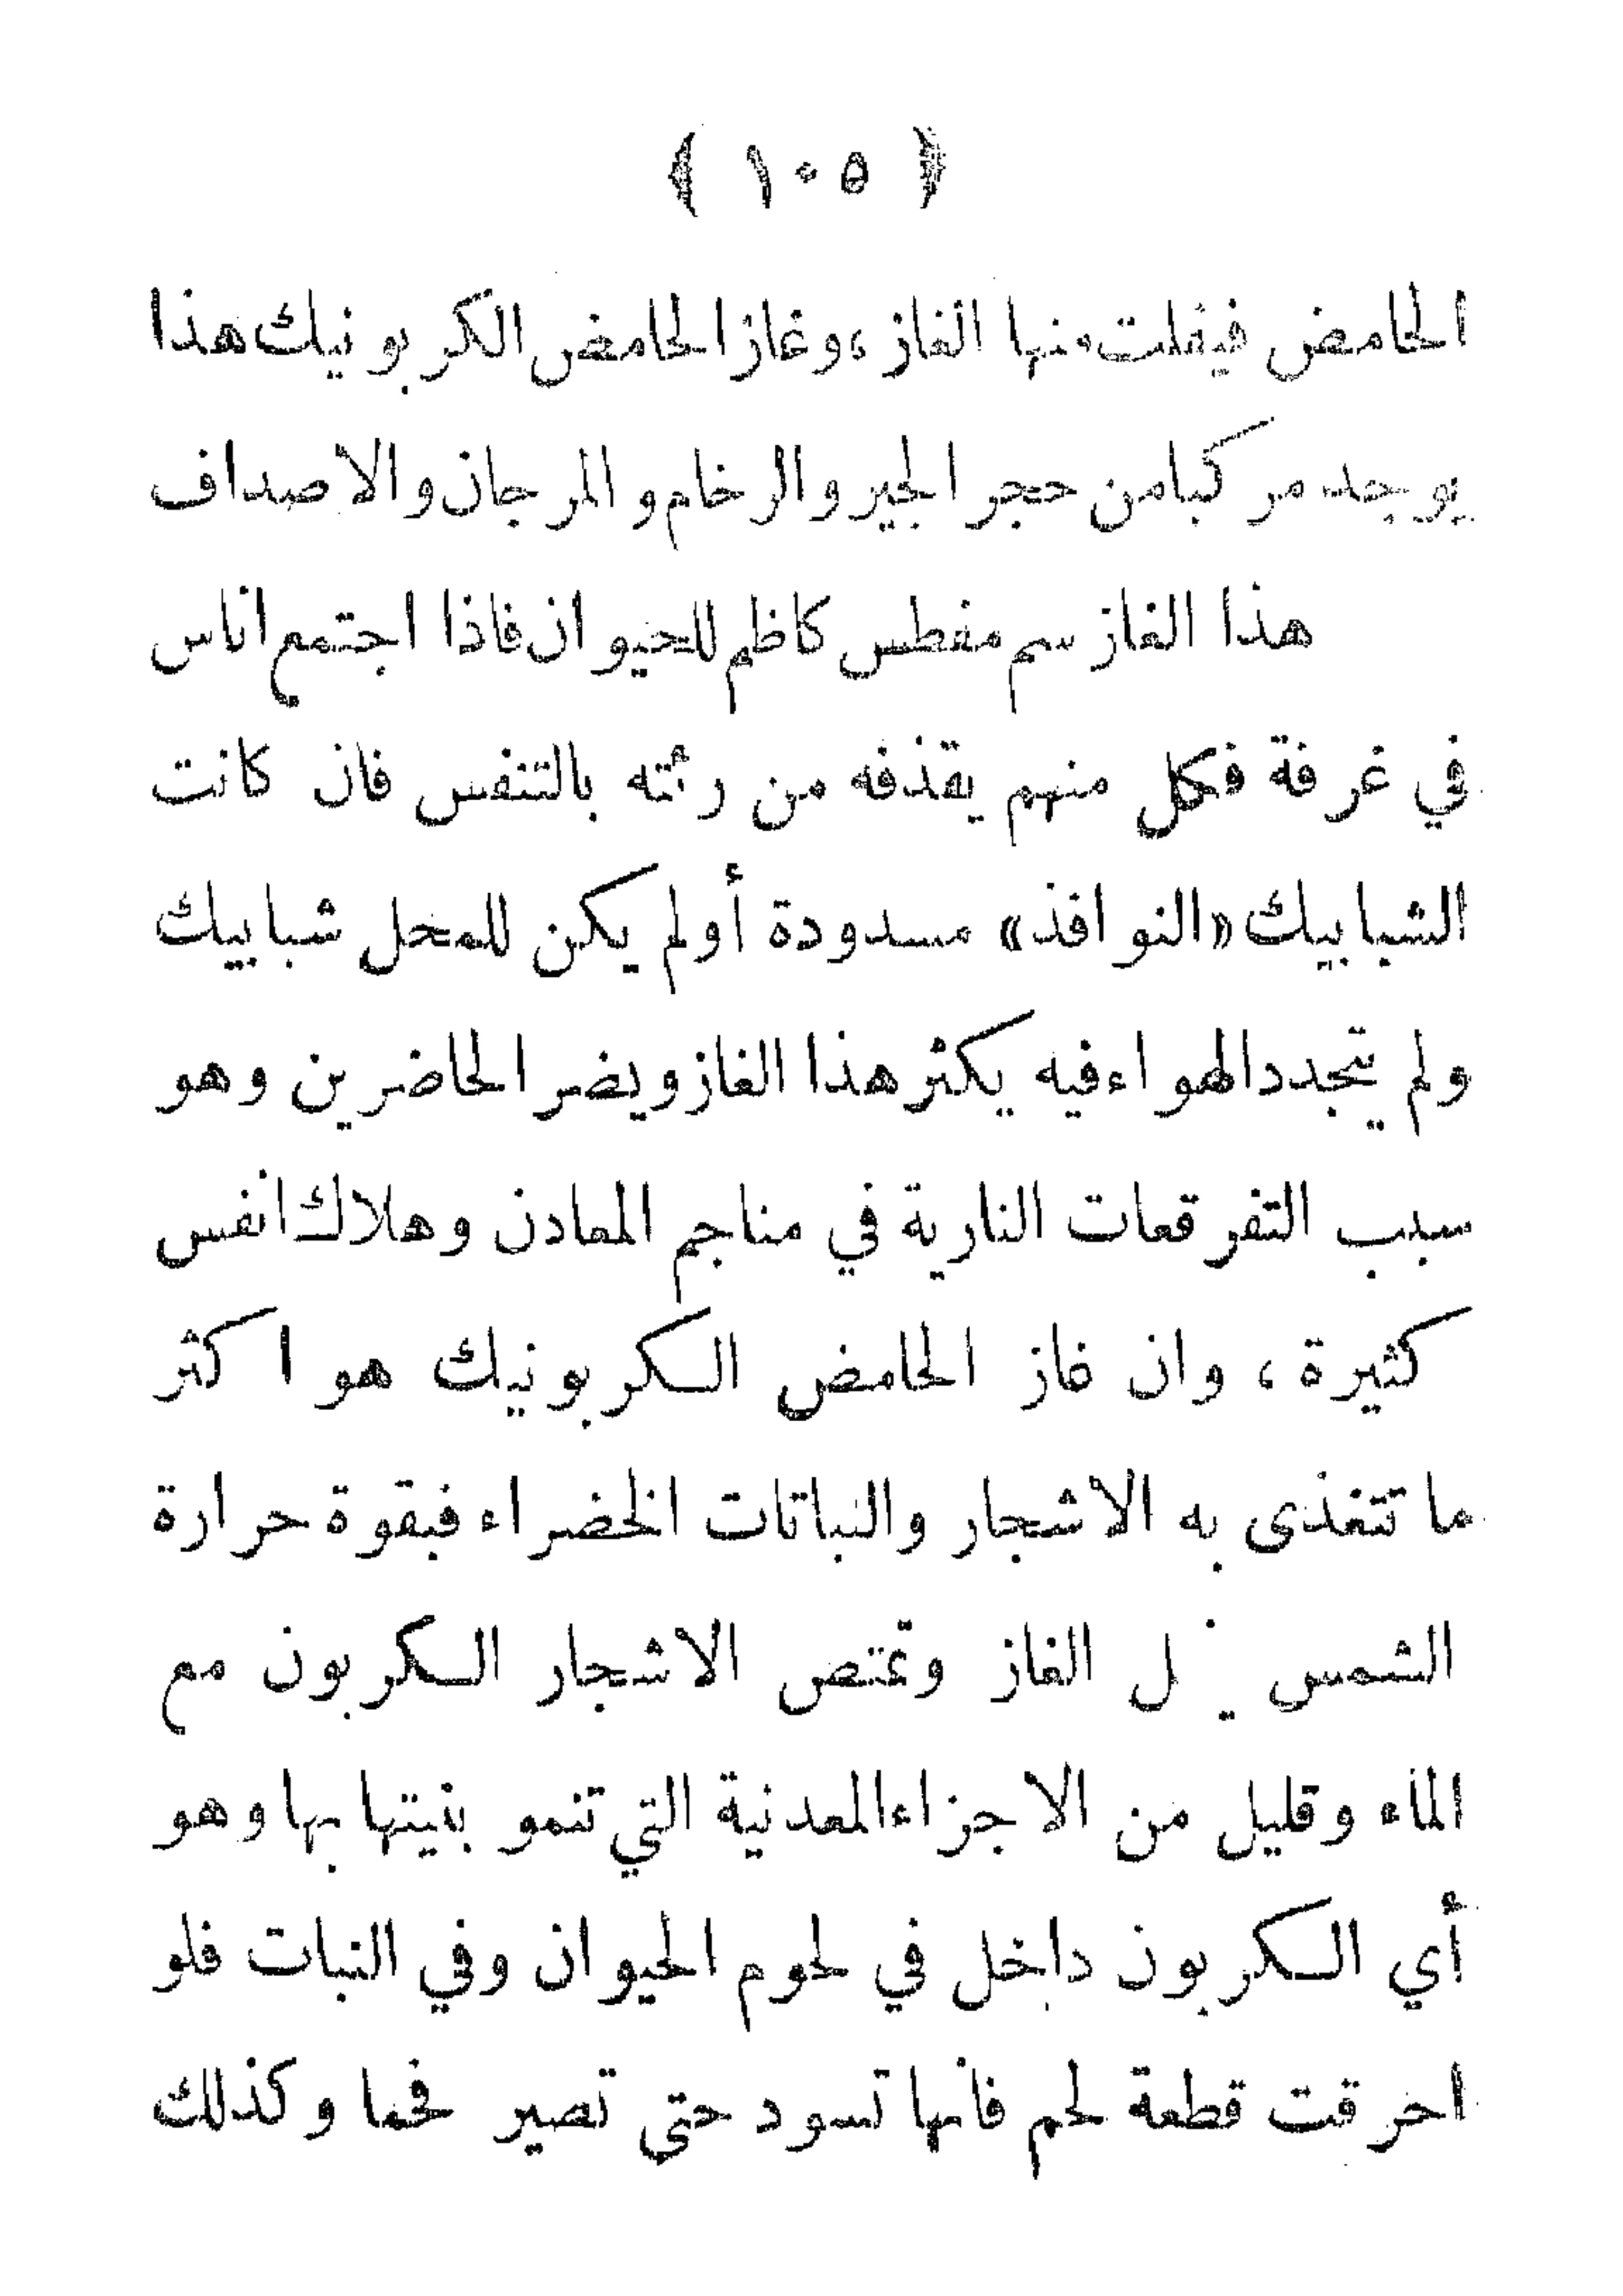 ﴿ ١٠٥ ﴾
الحامض فيفلت منها الغاز، وغاز الحامض الكربونيك هذا
يوجد مركبا من حجر الجير والرخام والمرجان والاصداف
هذا الغاز سم مفطس كاظم للحيوان فاذا اجتمع اناس
في غرفة فكل منهم يقذفه من رئته بالتنفس فان كانت
الشبابيك «النوافذ» مسدودة أولم يكن للمحل شبابيك
ولم يتجدد الهواء فيه يكثر هذا الغاز ويضر الحاضرين وهو
سبب التفرقعات النارية في مناجم المعادن وهلاك انفس
كثيرة، وان غاز الحامض الكربونيك هو اكثر
ما تتغذى به الاشجار والنباتات الخضراء فبقوة حرارة
الشمس الغاز وتمتص الاشجار الكربون مع
الماء وقليل من الاجزاء المعدنية التي تنمو بنيتها بها وهو
أي الكربون داخل في لحوم الحيوان وفي النبات فلو
احرقت قطعة لحم فانها تسود حتى تصير فحما وكذلك